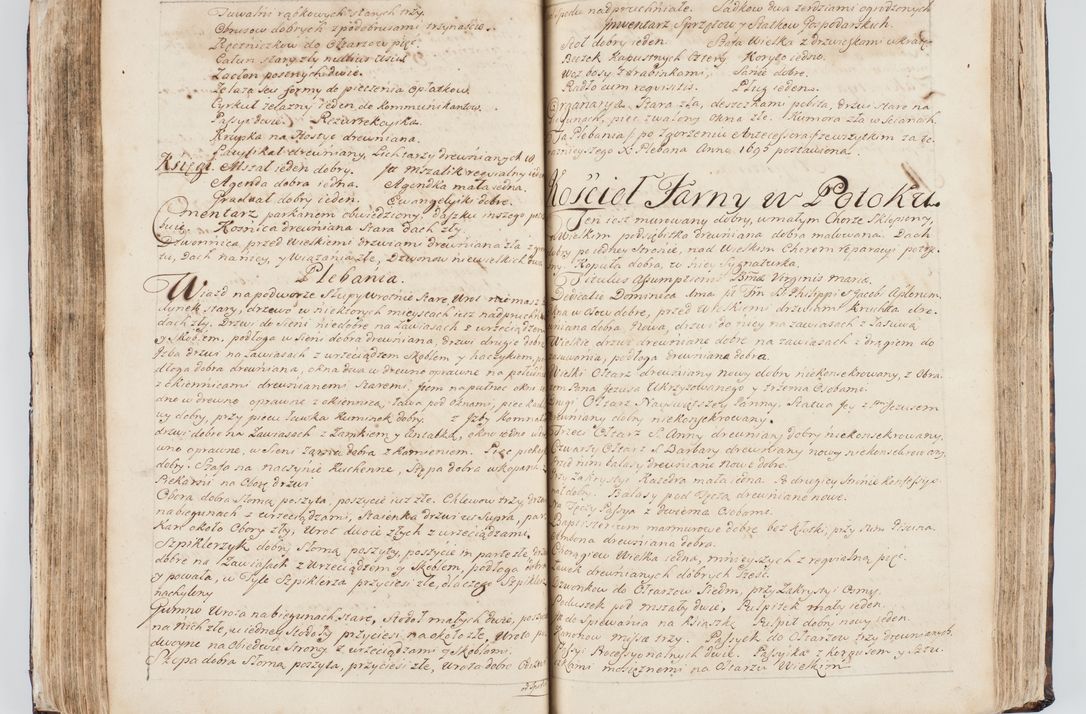 Tuwalni rąbkowych starych trzy.
Obrusow dobrych z podobrusami trzynaście.
Ręczniczkow do Ołtarzow pięć.
Całun stary zły nullius usus.
Zasłon postnych dwie.
Zelaza seu formy do pieczenia opłatkow.
Cyrkuł zelazny ieden do kommunikantow.
Passye dwie. Rezurrekcyika.
Kruszka na Hostye drewniana.
Pacyfikał drewniany, Lichtarzy drewnianych
Księgi. Mszał ieden dobry. Mszalik requialny ieden
Agenda dobra iedna. Agendka mała iedna.
Graduał dobry ieden. Ewangelyiki dobre.
Cmentarz parkanem obwiedziony, daszku inszego
Kośnica drewniana stara dach zły.
Dzwonnica, przed Wielkiemi drzwiami drewniana zła
Dach na niey, y wiązania złe, Dzwonow niewielkich dwa
Plebania.
Wiazd na podworze słupy wrotnie stare, wrot niemasz
stary, drzewo w niektorych mieyscach iest nadpruchniałe
dach zły. Drzwi do sieni niedobre na zawiasach z wrzeciądzem
y skoblem, podłoga w sieni dobra drewniana, drzwi drugie dobre
Izba drzwi na zawiasach z wrzeciądzem skoblem y haczykiem,
dobra drewniana, okna dwa w drewno oprawne na
z okiennicami drewnianemi staremi,
dne w drewno oprawne z okiennicą, ława pod oknami, piec
wy dobry, przy piecu ławka kuminek dobry. z Izby komnata
drzwi dobre na zawiasach z zamkiem y antabką, okno iedno w
wno oprawne, w sieni dobra z kamieniem. Piec
dobry. Szafa na naczynie kuchenne, Stępa dobra wkopana
Piekarni na Oborę drzwi
Obora dobra słomą poszyta, poszycie iuż złe. Chlewow trzy, drzwi
na biegunach z wrzeciądzami, Staienka drzwi ut supra,
kan około Obory zły, wrot dwoie złych z wrzeciądzami.
Szpiklerzyk dobry słomą poszyty, poszycie in parte złe, drzwi
dobre na zawiasach z wrzeciądzem y skoblem, podłoga dobra
y powała, w tyle szpiklerza przyciesi złe, dlaczego szpiklerz
nachylony
Gumno Wrota na biegunach stare, stodoł małych dwie,
na nich złe, w iedney stodoły przyciesi na około złe, Wrota
dwoyne na obiedwie strony z wrzeciądzami y skoblami.
Szopa dobra słomą poszyta, przyciesi złe, Wrota dobre
nadpruchniałe. Sadkow dwa zerdziami ogrodzonych
Inwentarz Sprzętow y Statkow Gospodarskich.
Stoł dobry ieden. Szafa Wielka z drzwiczkami w kraty
Beczek kapustnych cztery Koryto iedno.
Woz bosy z drabinkami, Sanie dobre.
Radło cum requisitis. Pług ieden.
Organarya Stara zła, deszczkami pobita, drzwi stare na
biegunach, piec zwalony okna złe. Kumora zła w ścianach.
Ta Plebania po zgorzeniu Antecessora ze wszytkim za te-
raznieyszego X. Plebana Anno 1695 postawiona.
Kościoł Farny w Potoku.
Ten iest murowany dobry, w małym Chorze Sklepiony,
w Wielkim podsiębitka drewniana dobra malowana. Dach
dobry po iedney stronie, nad Wielkim Chorem reparacyi potrze-
bny. Kopuła dobra, w niey Sygnaturka.
Titulus Assumptionis Bmae Virginis Mariae.
Dedicatio Dominica Ima pt Fm SS Philippi et Jacobi Aplorum.
Okna w ołow dobre, przed Wielkiemi drzwiami Kruchta dre-
wniana dobra, Nowa, drzwi do niey na zawiasach z zasuwą.
Wielkie drzwi drewniane dobre na zawiasach z drągiem do
zasuwania, podłoga drewniana dobra.
Wielki Ołtarz drewniany nowy dobry niekonsekrowany, z Obra-
zem Pana Jezusa Ukrzyzowanego y trzema Osobami.
Drugi Ołtarz Nayświętszey Panny, Statua Jey z Pm Jezusem
drewniany dobry niekonsekrowany.
Trzeci Ołtarz S. Anny drewniany dobry niekonsekrowany,
Czwarty Ołtarz S Barbary drewniany nowy niekonsekrowany,
Przed nim balasy drewniane Nowe dobre.
Przy Zakrystyi Kazedra mała iedna. Po drugiey stronie konfessyo-
nał dobry. Balasy pod Tęczą drewniane nowe.
Na Tęczy Passya z dwiema Osobami.
Baptisterium marmurowe dobre bez kłotki, przy nim Piscina.
Ambona drewniana dobra.
Chorągiew Wielka iedna, mnieyszych z requialną pięć.
Ławek drewnianych dobrych sześć.
Dzwonkow do Ołtarzow siedm, przy Zakrystyi osmy.
Poduszek pod mszały dwie, Pulpitek mały ieden.
do spiewania na książkę Pulpit dobry nowy ieden.
Kanonow missae trzy. Passyek do Ołtarzow trzy drewnianych,
Passyi Processyonalnych dwie. Passyika z korpusem y sztu-
czkami mosiężnemi na Ołtarzu Wielkim